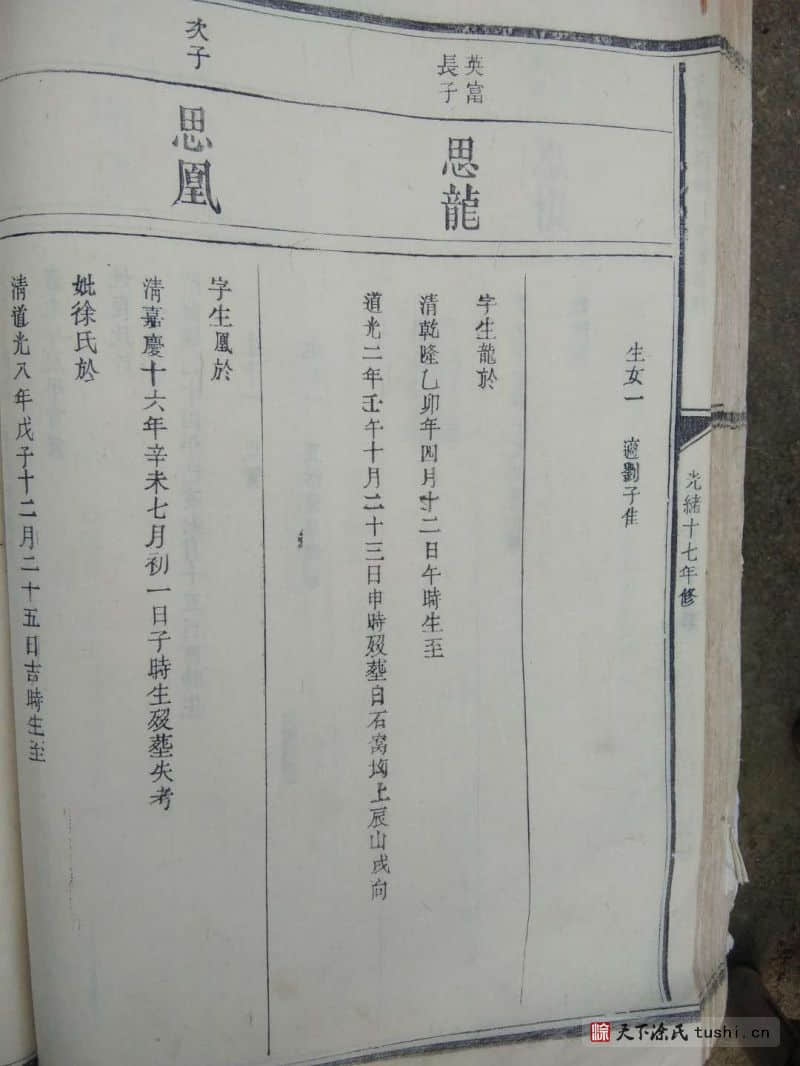 光緒十七年修
生女一 適劉子隹
英富
長子
思龍
字生龍於
清乾隆乙卯年四月十二日午時生至
道光二年壬午十月二十三日申時歿塟白石窩坳上辰山戌向
次子
思凰
字生凰於
清嘉慶十六年辛未七月初一日子時生歿塟失考
妣徐氏於
清道光八年戊子十二月二十五日吉時生至
天下涂氏 tushi.cn